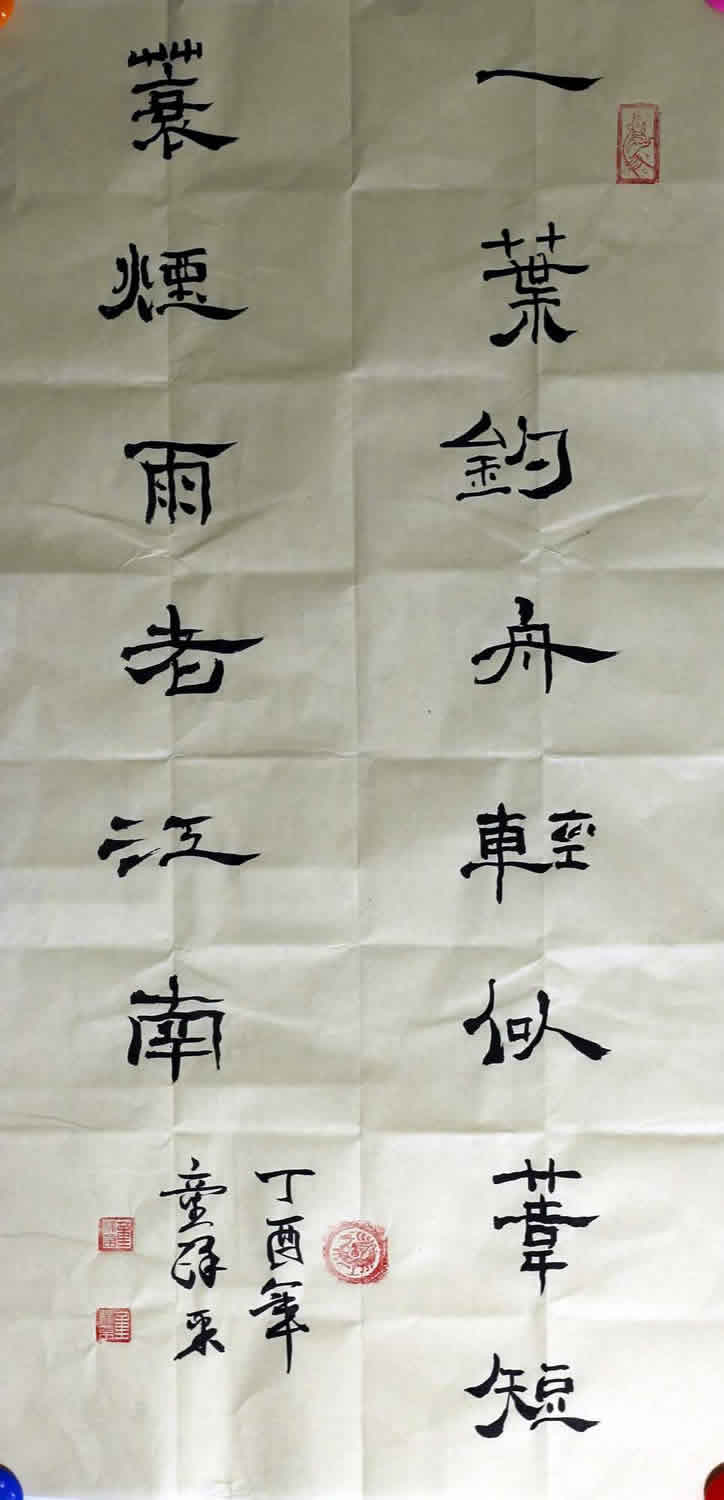 一葉釣舟輕似葦短
蓑煙雨老江南
丁酉年
童